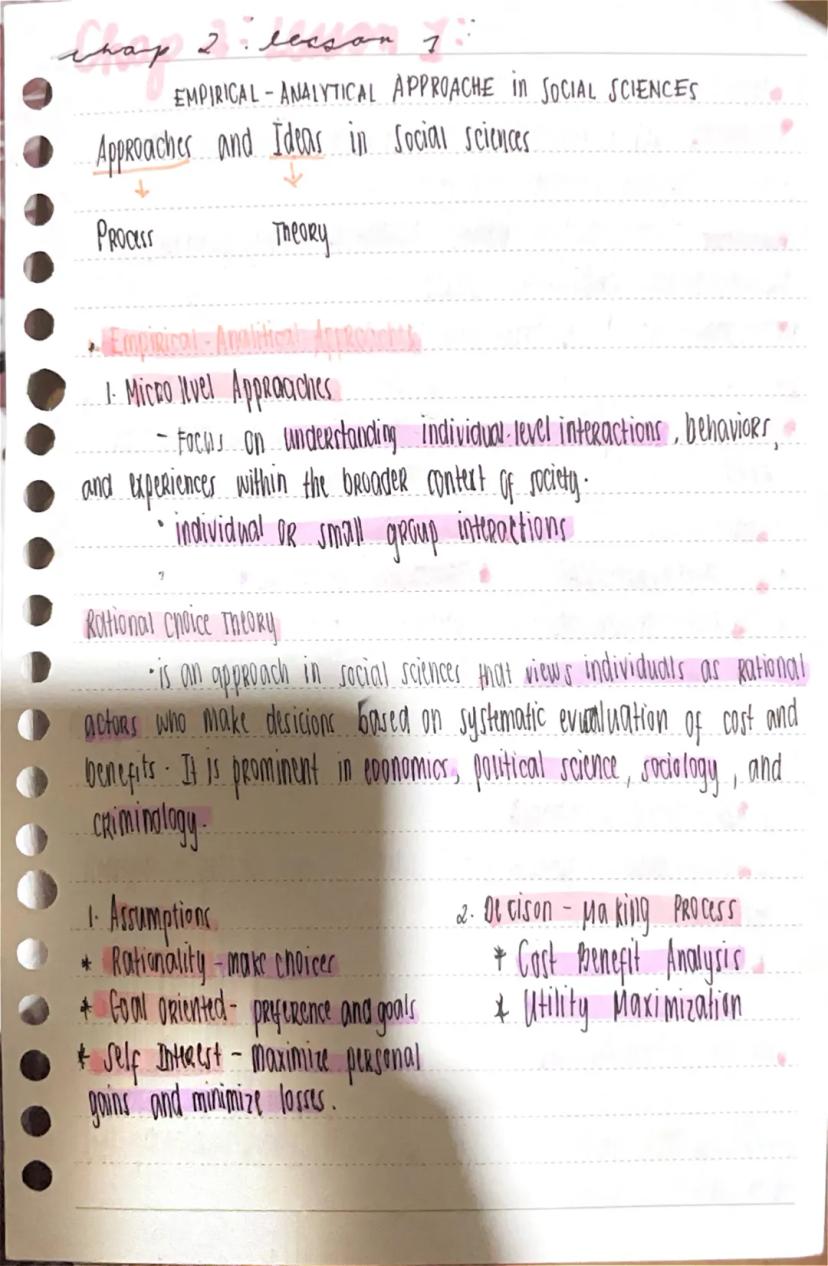 chap 2: lesson 1
EMPIRICAL-ANALYTICAL APPROACHE in SOCIAL SCIENCES
Approaches and Ideas in Social sciences
Process Theory
Empirical-Analitical Approaches
1. Micro level Approaches
- Focus on understanding individual-level interactions, behaviors,
and experiences within the broader context of society.
• individual or small group interactions
Rational Choice Theory
• is an approach in social sciences that views individuals as rational
actors who make desicions based on systematic evaluation of cost and
benefits. It is prominent in economics, political science, sociology, and
criminology.
1. Assumptions
* Rationality - make choices
* Goal oriented - preference and goals
* Self Interest - maximize personal
gains and minimize losses.
2. Decison-Making Process
* Cost Benefit Analysis
* Utility Maximization